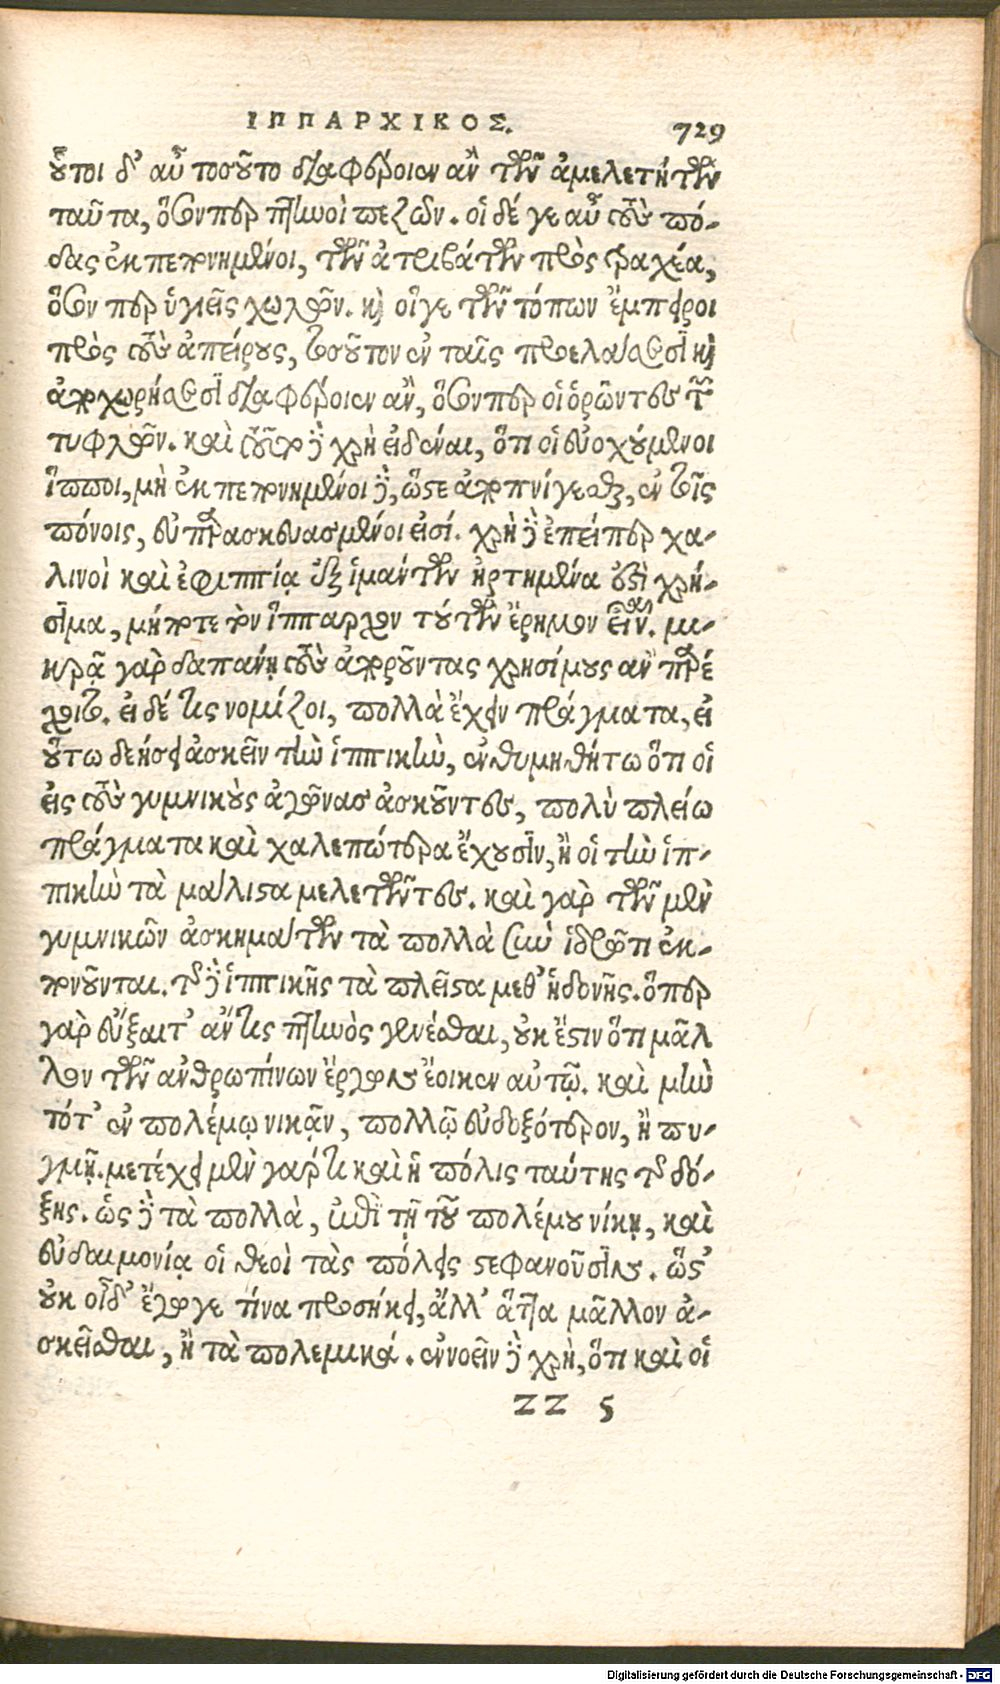 ΙΠΠΑΡΧΙΚΟΣ. 729
οὗτοι δ' αὖ τοσοῦτο διαφέροιεν ἂν τῶν ἀμελετήτων
ταῦτα, ὅσονπερ πτηνοὶ πεζῶν. οἱ δέ γε αὖ τοὺς πό-
δας ἐκπεπονημένοι, τῶν ἀτριβάτων πρὸς τραχέα,
ὅσον περ ὑγιεῖς χωλῶν. καὶ οἵγε τῶν τόπων ἔμπειροι
πρὸς τοὺς ἀπείρους, τοσοῦτον ἐν ταῖς προελάσεσι καὶ
ἀποχωρήσεσι διαφέροιεν ἂν, ὅσονπερ οἱ ὁρῶντες τῶν
τυφλῶν. καὶ τοῦτο δὲ χρὴ εἰδέναι, ὅτι οἱ εὐοχούμενοι
ἵπποι, μὴ ἐκπεπονημένοι δὲ, ὥστε ἀποπνίγεσθαι, ἐν τοῖς
πόνοις, εὖ παρασκευασμένοι εἰσί. χρὴ δὲ ἐπείπερ χα-
λινοὶ καὶ ἐφίππια ἐξ ἱμάντων ἠρτημένα ἐστὶ χρή-
σιμα, μήποτε τὸν ἵππαρχον τούτων ἔρημον εἶναι. μι-
κρᾷ γὰρ δαπάνῃ τοὺς ἀποροῦντας χρησίμους ἂν παρέ-
χοιτο. εἰ δέ τις νομίζοι, πολλὰ ἔχειν πράγματα, εἰ
οὕτω δεήσει ἀσκεῖν τὴν ἱππικὴν, ἐνθυμηθήτω ὅτι οἱ
εἰς τοὺς γυμνικοὺς ἀγῶνας ἀσκοῦντες, πολὺ πλείω
πράγματα καὶ χαλεπώτερα ἔχουσιν, ἢ οἱ τὴν ἱπ-
πικὴν τὰ μάλιστα μελετῶντες. καὶ γὰρ τῶν μὲν
γυμνικῶν ἀσκημάτων τὰ πολλὰ σὺν ἱδρῶτι ἐκ-
πονοῦνται. τῆς δὲ ἱππικῆς τὰ πλεῖστα μεθ' ἡδονῆς. ὅπερ
γὰρ εὔξαιτ' ἄν τις πτηνὸς γενέσθαι, οὐκ ἔστιν ὅτι μᾶλ
λον τῶν ἀνθρωπίνων ἔργων ἔοικεν αὐτῷ. καὶ μὴν
τότ' ἐν πολέμῳ νικᾷν, πολλῷ εὐδοξότερον, ἢ πυ-
γμῇ. μετέχει μὲν γάρ τι καὶ ἡ πόλις ταύτης τῆς δό-
ξης. ὡς δὲ τὰ πολλὰ, ἐπὶ τῇ τοῦ πολέμου νίκῃ, καὶ
εὐδαιμονίᾳ οἱ θεοὶ τὰς πόλεις στεφανοῦσιν. ὥστ'
οὐκ οἶδ' ἔγωγε τίνα προσήκει, ἄλλ' ἄττα μᾶλλον ἀ-
σκεῖσθαι, ἢ τὰ πολεμικά. ἐννοεῖν δὲ χρὴ, ὅτι καὶ οἱ
ZZ 5
Digitalisierung gefördert durch die Deutsche Forschungsgemeinschaft - DFG